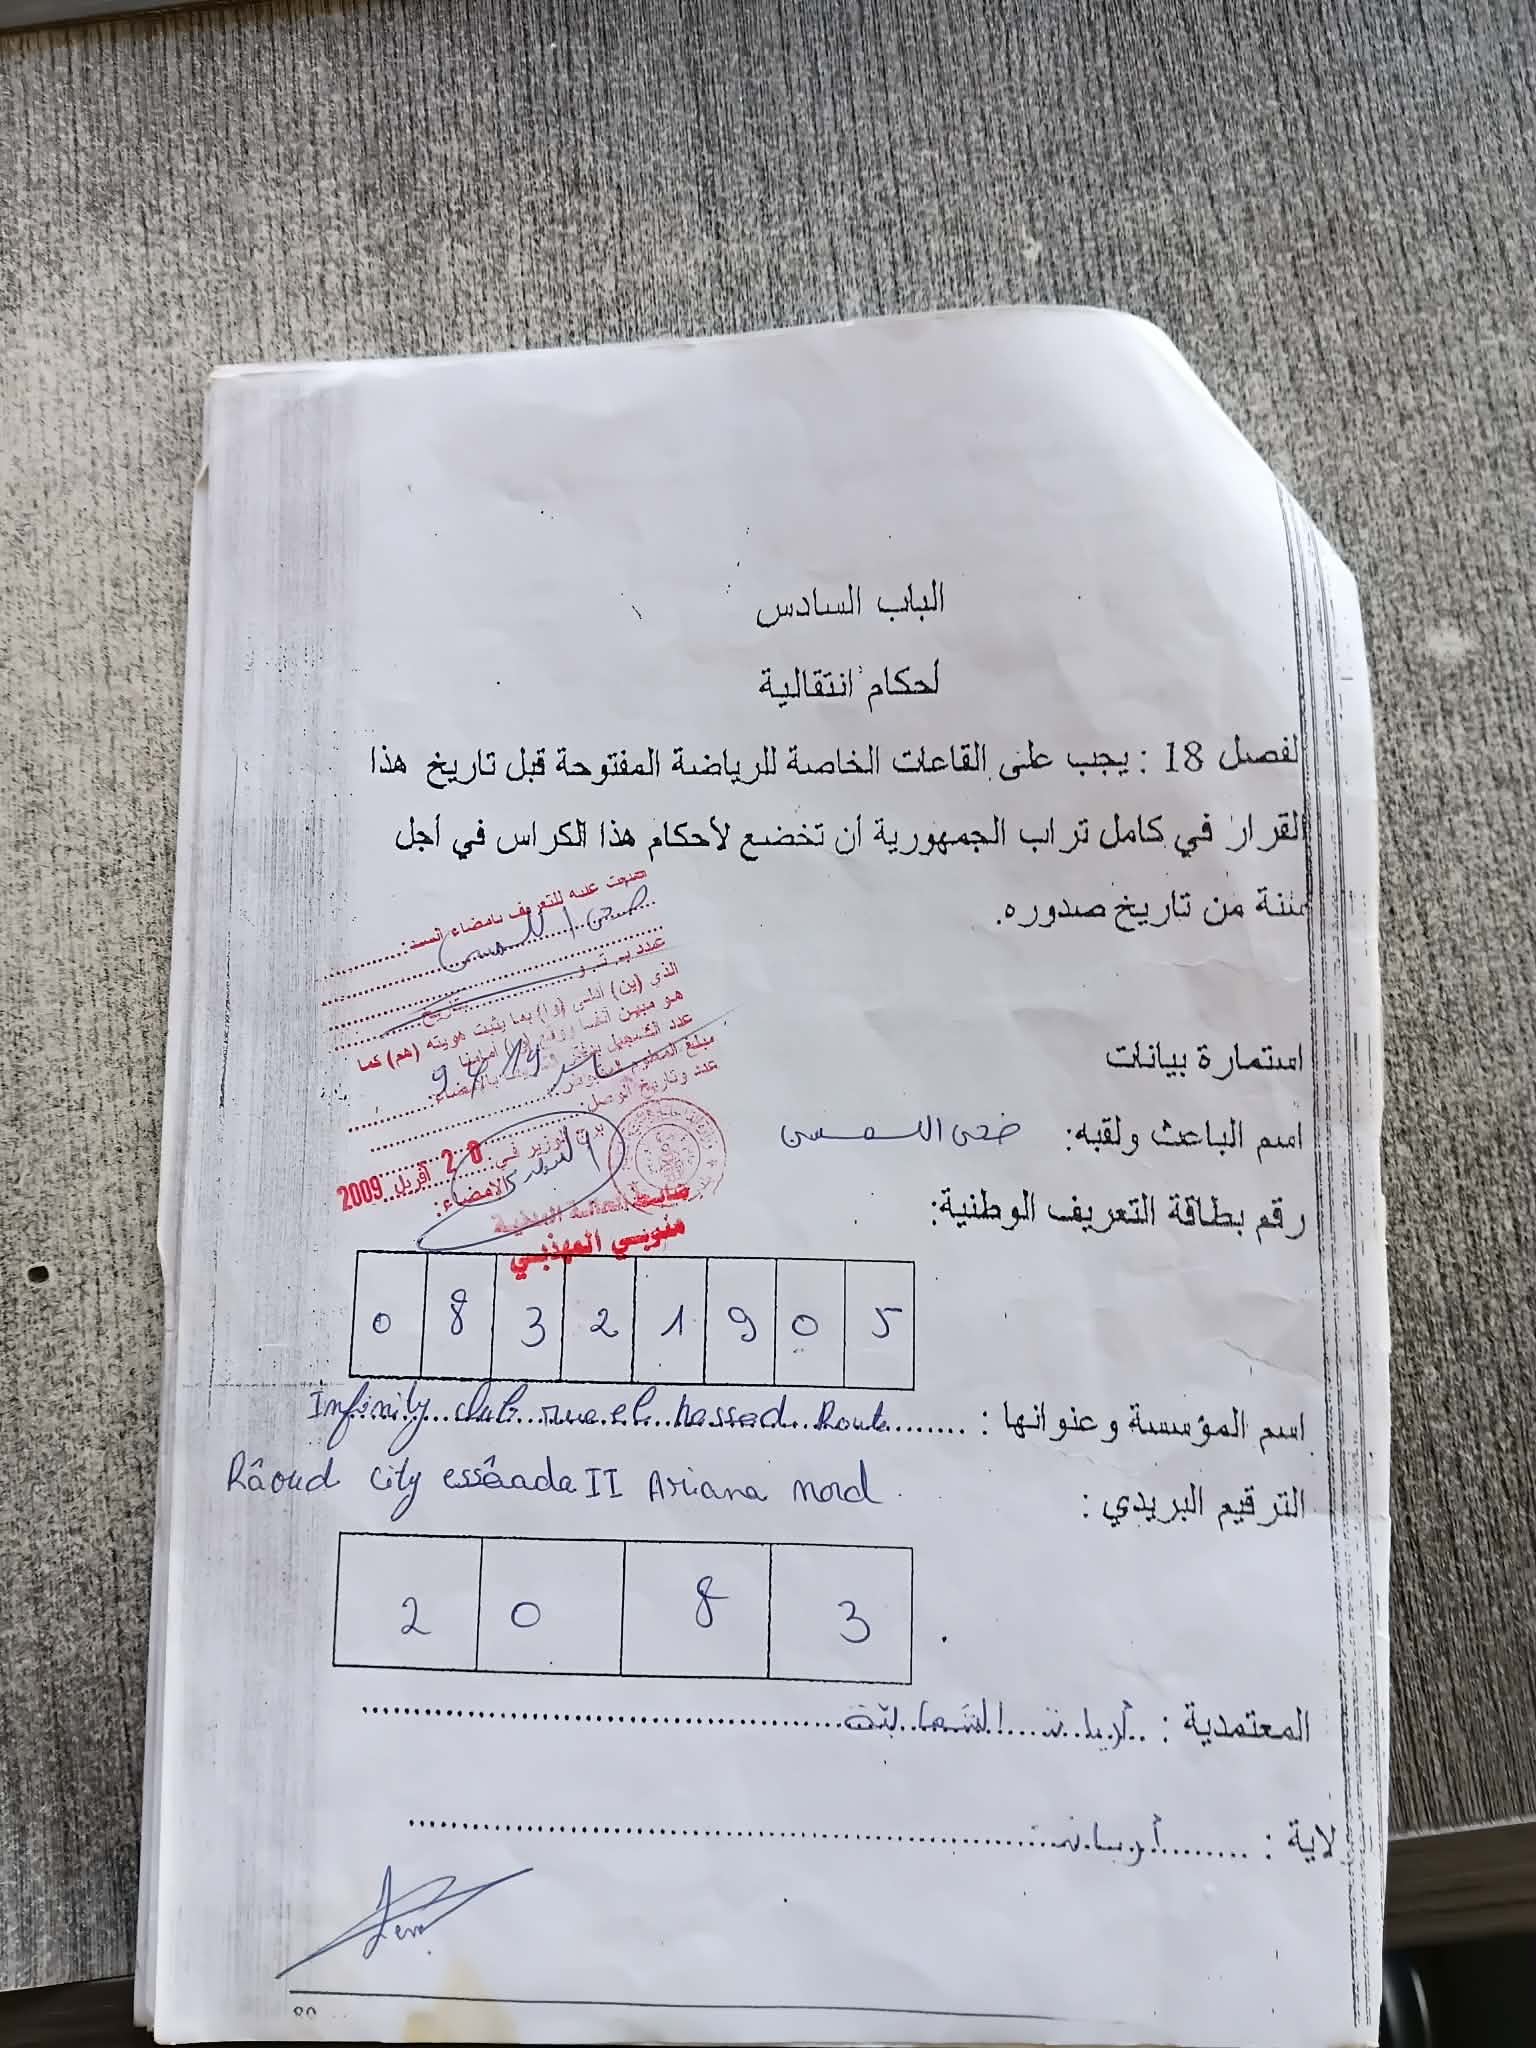 الباب السادس
أحكام انتقالية
لفصل 18 : يجب على القاعات الخاصة للرياضة المفتوحة قبل تاريخ هذا
القرار في كامل تراب الجمهورية أن تخضع لأحكام هذا الكراس في أجل
سنة من تاريخ صدوره.
للتعريف بامضاء السيد:
عدد ب ت و بتاريخ
الذي (ين) أدلى (وا) بما يثبت هويته (هم) كما
هو مبين
عدد التسجيل بدفتر التعريف بالامضاء
مبلغ المعلوم
عدد وتاريخ الوصل
برج الوزير في: 20 أفريل 2009
الامضاء:
ضابط الحالة المدنية
منوبي المهذبي
استمارة بيانات
اسم الباعث ولقبه: ضحى
رقم بطاقة التعريف الوطنية:
0 8 3 2 1 9 0 5
اسم المؤسسة وعنوانها : Infinity club rue el hassad Route
Râoud City essâada II Ariana nord
الترقيم البريدي :
2 0 8 3
المعتمدية : أريانة الشمالية
لاية : أريانة